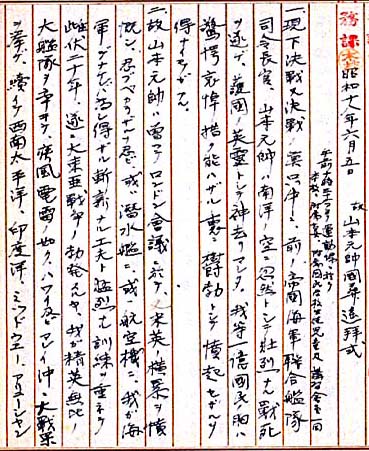 務課
昭和十八年六月五日 故山本元帥國葬遙拝式
午前十時
一、現下決戰又決戰ノ真只中ニ、前帝國海軍聯合艦隊
司令長官、山本元帥ハ南洋ノ空ニ忽然トシテ壮烈ナル戰死
ヲ遂ゲ、護國ノ英靈トシテ神去リマシタ。我等一億國民ノ胸ハ
驚愕哀悼措ク能ハザル裏ニ欝勃トシテ憤起セザルヲ
得マセン。
二、故山本元帥ハ曽テロンドン會議ニ於テ、米英ノ横暴ヲ憤
慨シ、忍ブベカラザルヲ忍ビ、或ハ潜水艦ニ、或ハ航空機ニ、我ガ海
軍ノミナシ得ザル斬新ナル工夫ト猛烈ナル訓練ヲ重ネラレ
雌伏二十年、遂ニ大東亜戰爭ノ勃発スルヤ、我ガ精英無比ノ
大艦隊ヲ率ヰテ、疾風電雷ノ如ク、ハワイ及ビマレイ沖ニ大戰果
ヲ挙ゲ、續イテ西南太平洋、印度洋、ミッドウエー、アリューシャン